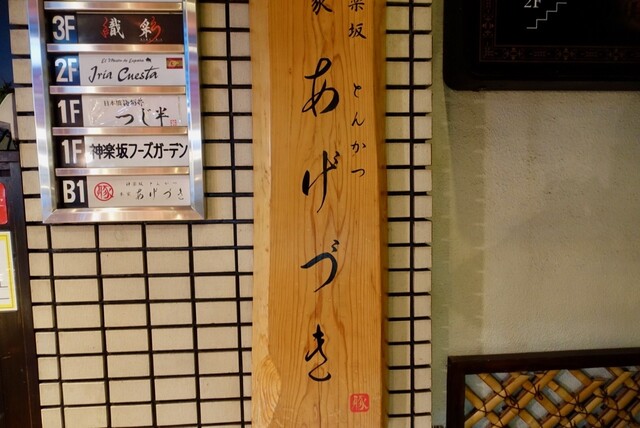 3F 織彩
2F El Museo de España
Iria Cuesta
1F 日本橋海鮮丼
つじ半
1F 神楽坂フーズガーデン
B1 豚 神楽坂 とんかつ
本家 あげづき
楽坂 とんかつ
家 あげづき
豚
2F